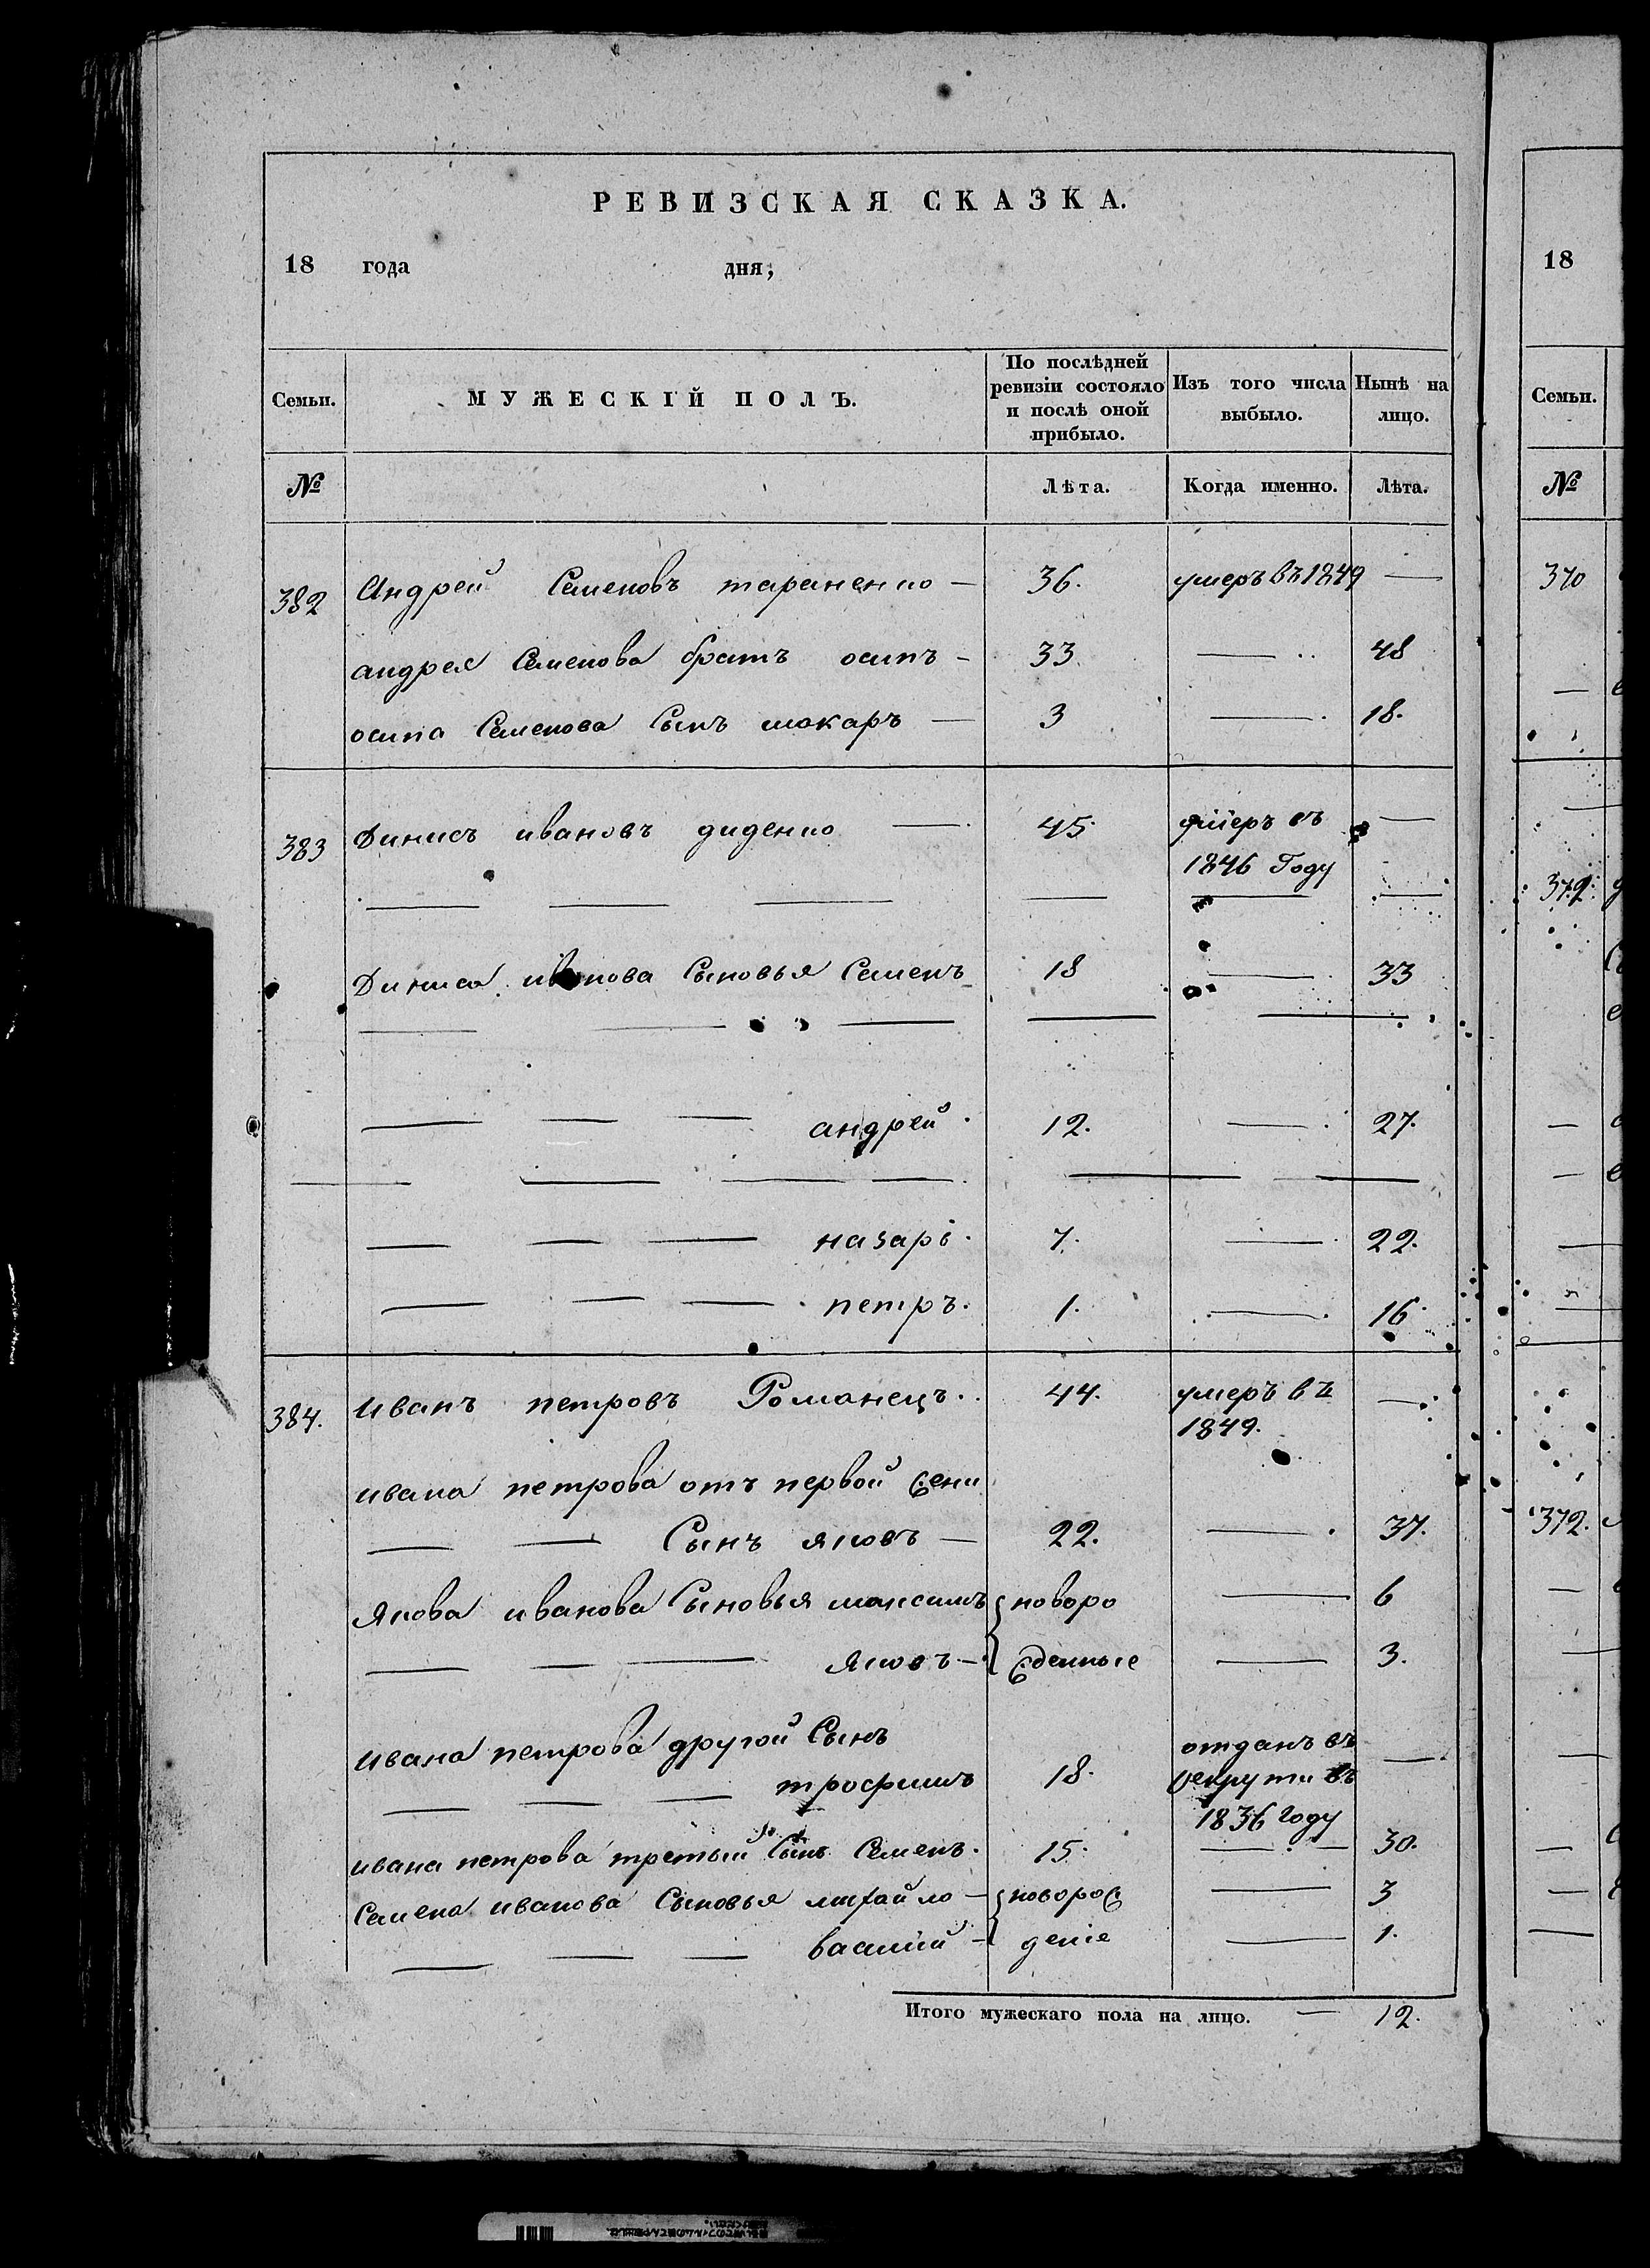 РЕВИЗСКАЯ СКАЗКА.
18 года дня;
Семьи. МУЖЕСКІЙ ПОЛЪ. По послѣдней ревизіи состояло и послѣ оной прибыло. Изъ того числа выбыло. Нынѣ на лицо.
№ Лѣта. Когда именно. Лѣта.
382 Андрей Семеновъ тараненко — 36. умеръ въ 1849 —
андрея Семенова братъ осипъ — 33. — 48
осипа Семенова Сынъ макаръ — 3 — 18.
383 Динисъ ивановъ диденко — 45. умеръ въ —
1846 Году
Диниса иванова Сыновья Семенъ 18 — 33
— — — андрей. 12. — 27.
— — — назарі. 7. — 22.
— — — петръ. 1. — 16.
384. иванъ петровъ Романецъ. 44. умеръ въ —
1849.
ивана петрова отъ первой жени
— — Сынъ яковъ — 22. — 37.
якова иванова Сыновья максимъ новоро — 6
— — — яковъ — жденные — 3.
ивана петрова другой Сынъ отданъ въ —
— — — трофимъ 18. рекрути въ
1836 году
ивана петрова третьій Сынъ Семенъ. 15. — 30.
Семена иванова Сыновья михайло — новорож — 3
— — — василій — деніе — 1.
Итого мужескаго пола на лицо. — 12.
18
Семьи.
№
370
372.
372.